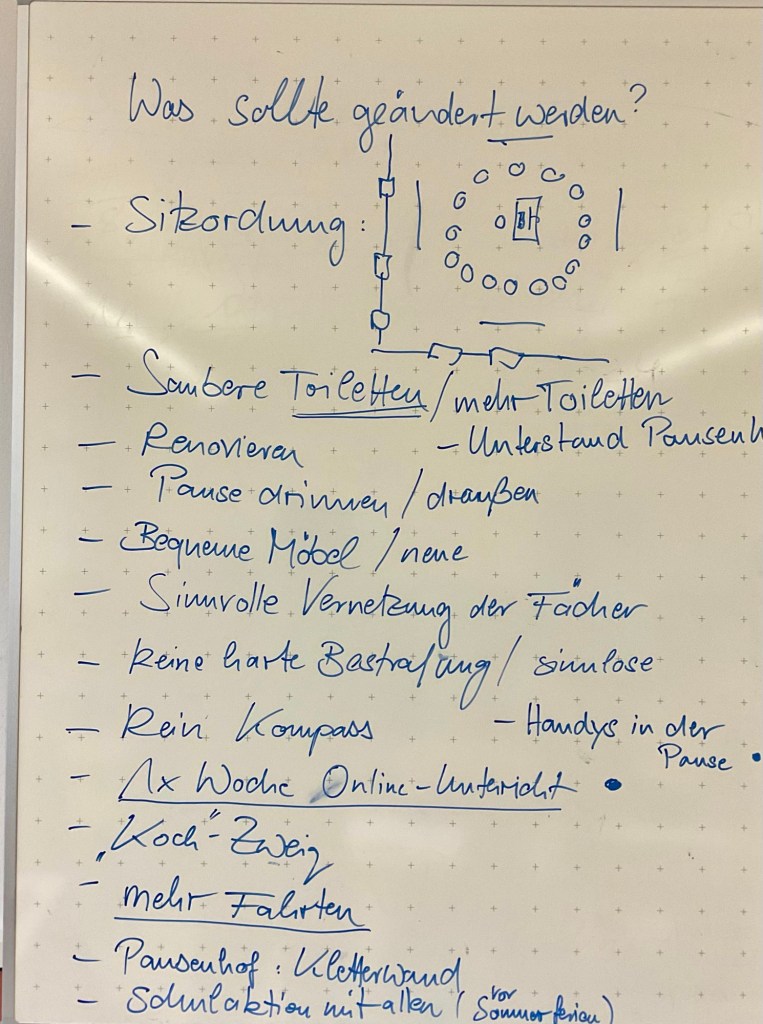 Was sollte geändert werden?
- Sitzordnung:
- Saubere Toiletten / mehr Toiletten
- Renovieren - Unterstand Pausenh
- Pause drinnen / draußen
- Bequeme Möbel / neue
- Sinnvolle Vernetzung der Fächer
- keine harte Bestrafung / sinnlose
- Kein Kompass - Handys in der
Pause •
- 1x Woche Online-Unterricht •
- "Koch"-Zweig
- mehr Fahrten
- Pausenhof: Kletterwand
- Schulaktion mit allen (vor Sommerferien)